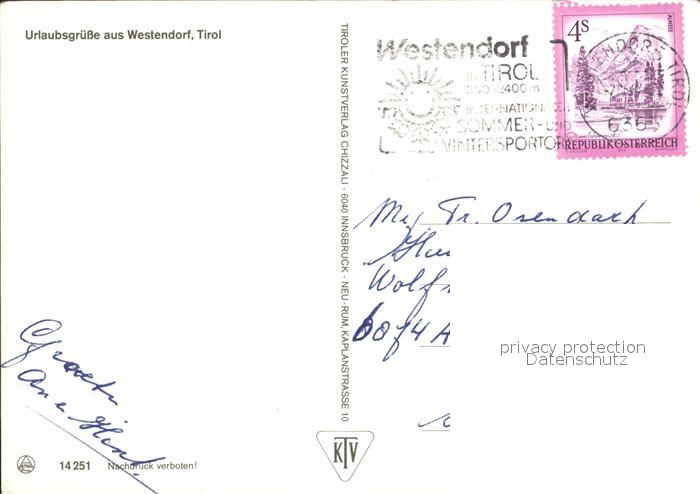 Urlaubsgrüße aus Westendorf, Tirol
TIROLER KUNSTVERLAG CHIZZALI - 6040 INNSBRUCK - NEU-RUM, KAPLANSTRASSE 10
Westendorf
IN TIROL
800-2400 m
INTERNATIONALER
SOMMER- UND
WINTERSPORTORT
4S
ALMSEE
REPUBLIK ÖSTERREICH
WESTENDORF TIROL
636
Tr. Osendach
Wolfs
6074 A
privacy protection
Datenschutz
14 251 Nachdruck verboten!
KTV